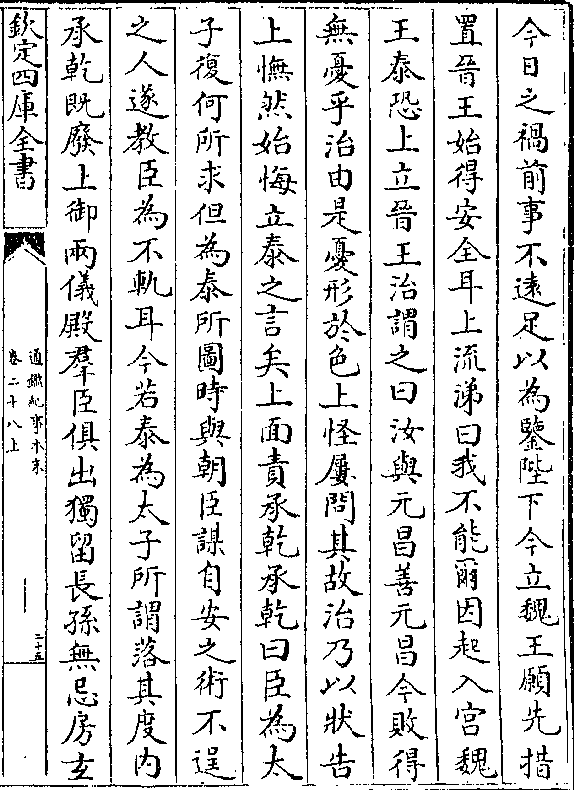 今日之禍前事不遠足以為鑒陛下今立魏王願先措
置晉王始得安全耳上流涕曰我不能爾因起入宫魏
王泰恐上立晉王治謂之曰汝與元昌善元昌今敗得
無憂乎治由是憂形於色上怪屢問其故治乃以狀告
上憮然始悔立泰之言矣上面責承乾承乾曰臣為太
子復何所求但為泰所圖時與朝臣謀自安之術不逞
之人遂教臣為不軌耳今若泰為太子所謂落其度内
承乾既廢上御兩儀殿羣臣俱出獨留長孫無忌房玄
欽定四庫全書
通鑑紀事本末
卷二十八上
二十五